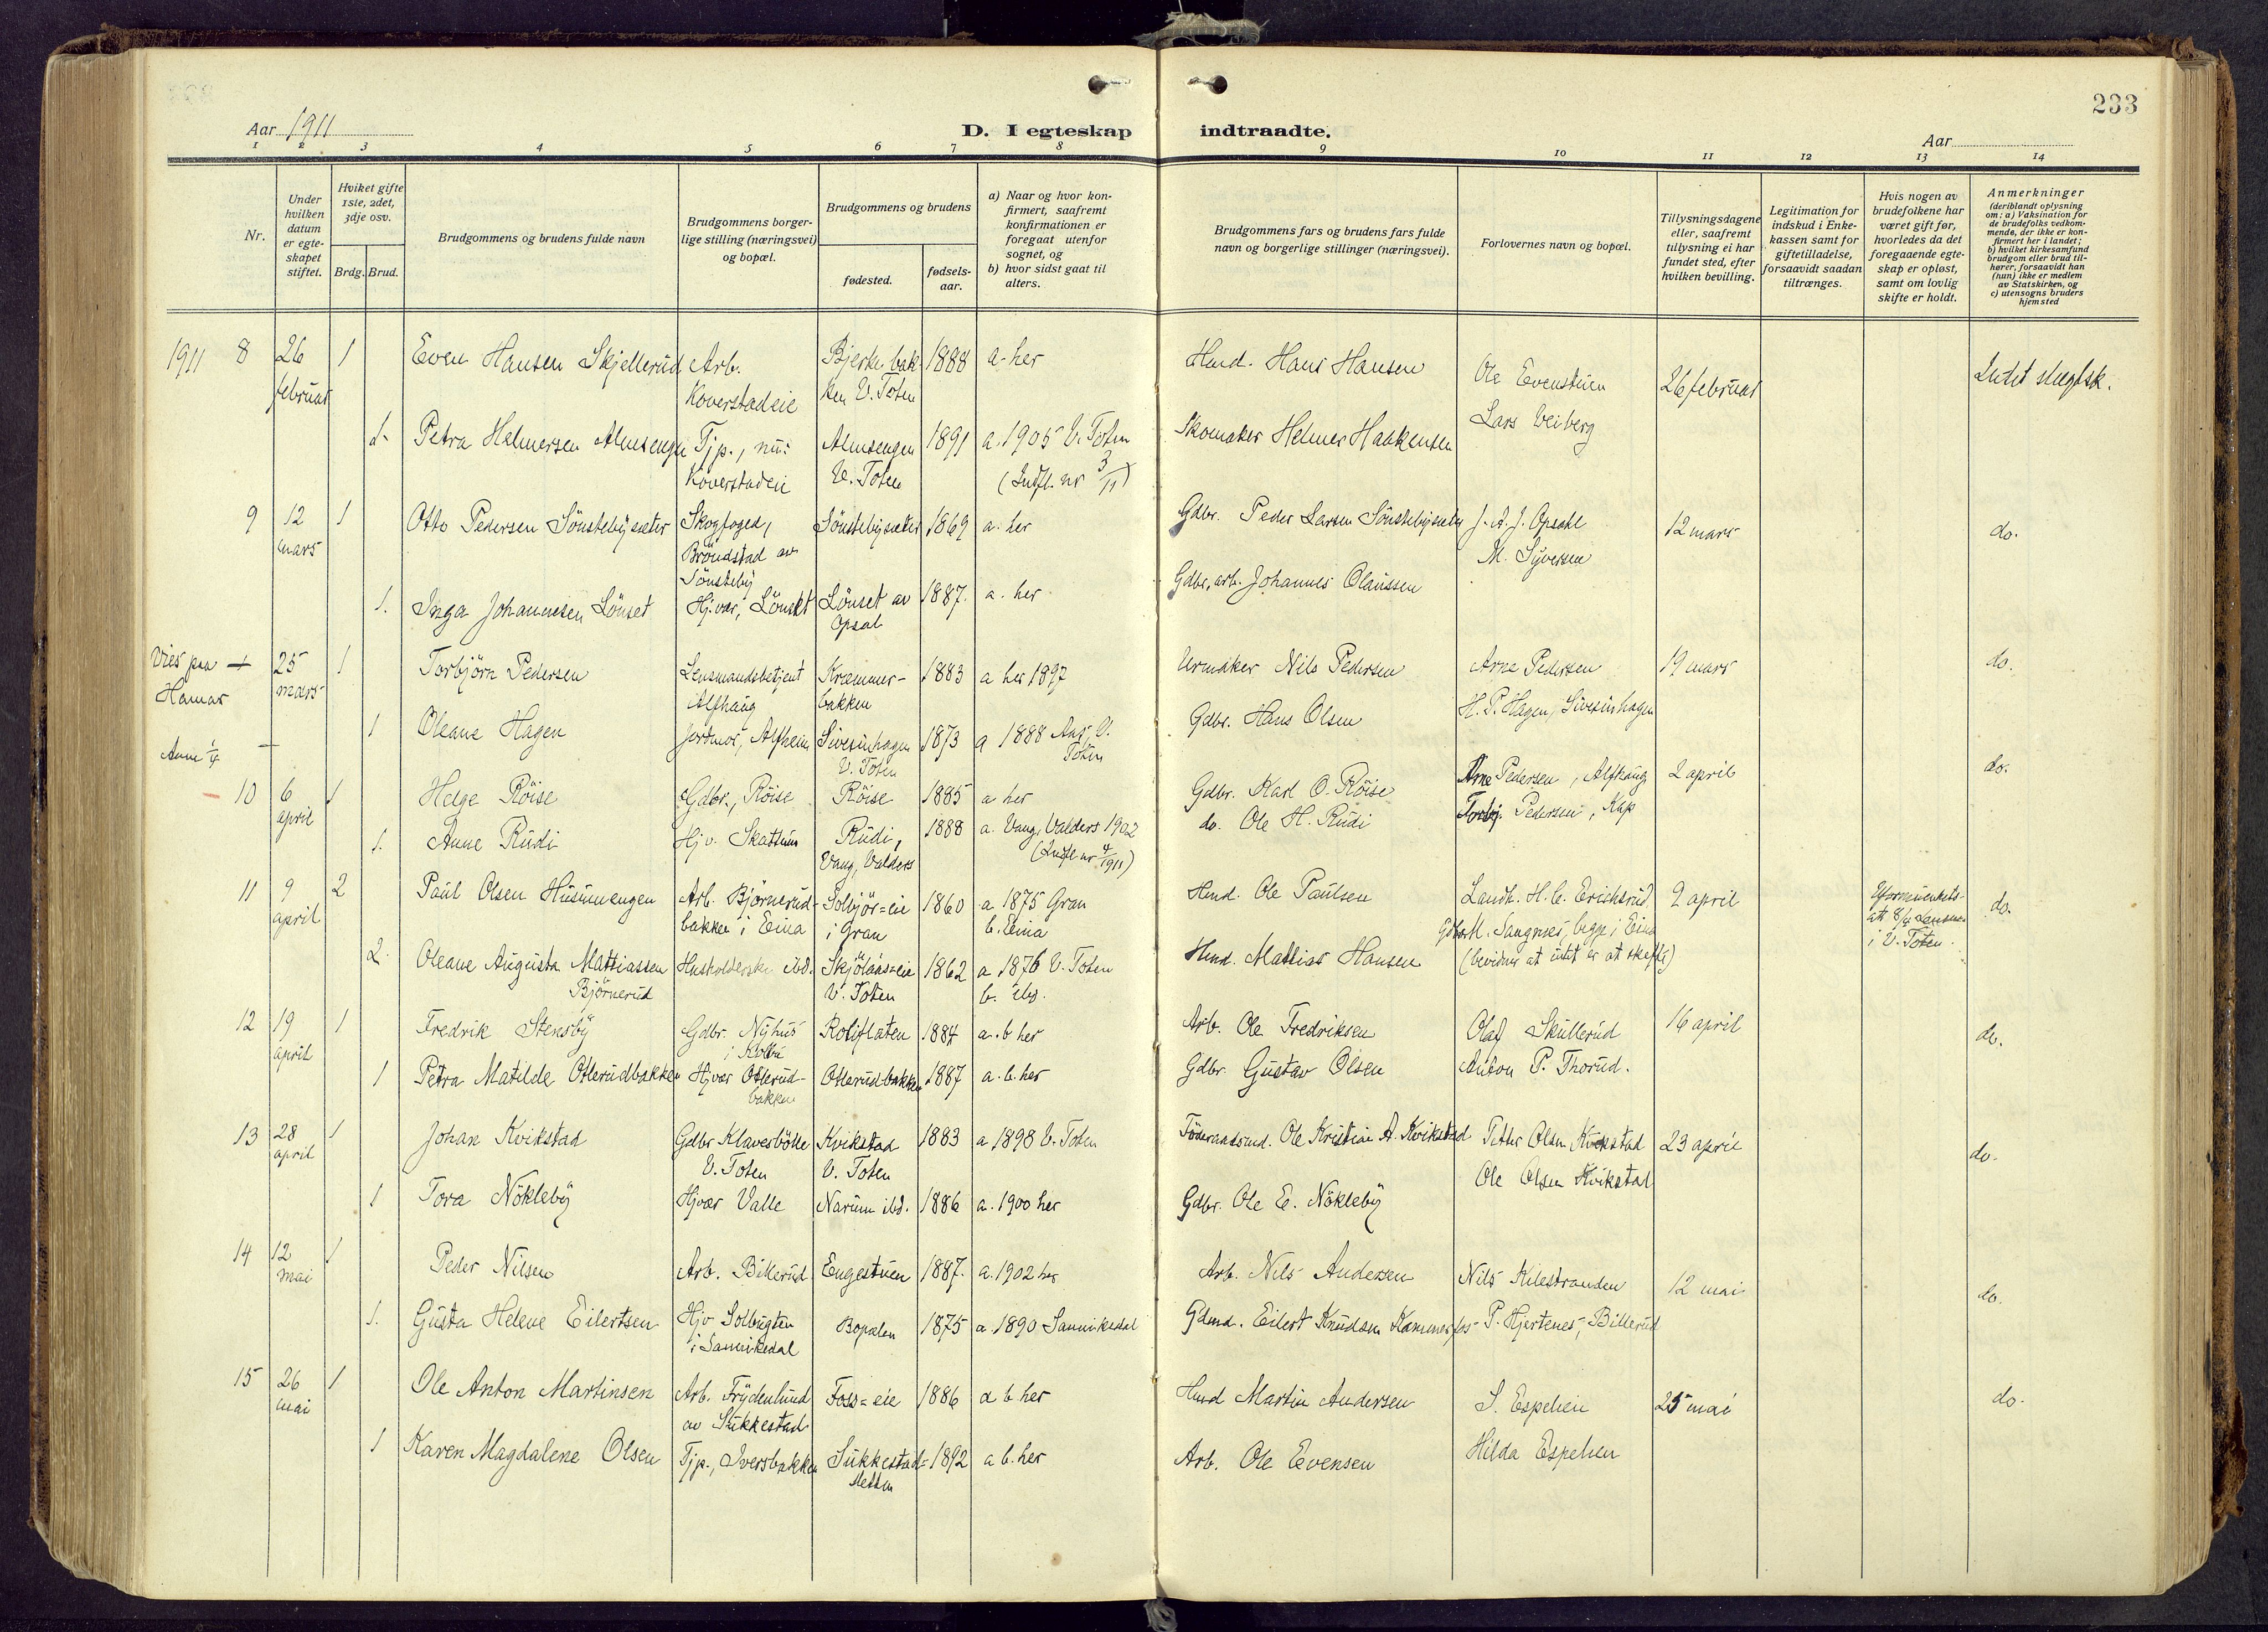 233
Aar 1911
D. I egteskap indtraadte.
Aar
1 2 3 4 5 6 7 8 9 10 11 12 13 14
Nr.
Under hvilken datum er egteskapet stiftet.
Hviket gifte 1ste, 2det, 3dje osv.
Brdg. Brud.
Brudgommens og brudens fulde navn
Brudgommens borgerlige stilling (næringsvei) og bopæl.
Brudgommens og brudens
fødested.
fødselsaar.
a) Naar og hvor konfirmert, saafremt konfirmationen er foregaat utenfor sognet, og
b) hvor sidst gaat til alters.
Brudgommens fars og brudens fars fulde navn og borgerlige stillinger (næringsvei).
Forlovernes navn og bopæl.
Tillysningsdagene eller, saafremt tillysning ei har fundet sted, efter hvilken bevilling.
Legitimation for indskud i Enkekassen samt for giftetilladelse, forsaavidt saadan tiltrænges.
Hvis nogen av brudefolkene har været gift før, hvorledes da det foregaaende egteskap er opløst, samt om lovlig skifte er holdt.
Anmerkninger
(deriblandt oplysning om: a) Vaksination for de brudefolks vedkommende, der ikke er konfirmert her i landet; b) hvilket kirkesamfund brudgom eller brud tilhører, forsaavidt han (hun) ikke er medlem av Statskirken, og c) utensogns bruders hjemsted
1911 8 26 februar 1 Even Hansen Skjellerud Arb. Koverstadeie Bjerkebakken V. Toten 1888 a. her Hmd. Hans Hansen Ole Evenstuen 26 februar Intet slegtsk.
1. Petra Helmersen Almsengen Tjp., nu: Koverstadeie Almsengen V. Toten 1891 a. 1905 V. Toten (Indfl. nr 3/11) Skomaker Helmer Haakensen Lars Veiberg
9 12 mars 1 Otto Pedersen Sönstebysæter Skogfoged, Bröndstad av Sönsteby Sönstebysæter 1869 a. her Gdbr. Peder Larsen Sönstebysæter J. A. J. Opsahl 12 mars do.
M. Syversen
1. Inga Johannesen Lönset Hjvær, Lönset Lönset av Opsal 1887. a. her Gdbr, arb. Johannes Olaussen
Viet paa Hamar + 25 mars 1 Torbjörn Pedersen Lensmandsbetjent Alfhaug Kræmmerbakken 1883 a her 1897 Urmaker Nils Pedersen Arne Pedersen 19 mars do.
1 Oleane Hagen Jordmor, Alfheim Sivesinhagen V. Toten 1873 a 1888 Aas, V. Toten Gdbr. Hans Olsen H. P. Hagen, Sivesinhagen
Anm 1/4 —
10 6 april 1 Helge Röise Gdbr., Röise Röise 1885 a her Gdbr. Karl O. Röise Arne Pedersen, Alfhaug 2 april do.
1. Anne Rudi Hjv. Skattum Rudi, Vang, Valders 1888 a. Vang, Valders 1902 (Indfl nr 4/1911) do. Ole H. Rudi Torbj. Pedersen, Kap
11 9 april 2 Paul Olsen Husumengen Arb. Björnerudbakken i Eina Solbjör=eie i Gran 1860 a 1875 Gran b. Eina Hmd. Ole Paulsen Landh. H. C. Erichsrud 9 april i V. Toten. do.
2. Oleane Augusta Mattiassen Björnerud Husholderske ibd. Skjölaas=eie V. Toten 1862 a 1876 V. Toten b. ibd. Hmd. Mattias Hansen Gdbr. M. Sangnæs, begge i Eina (bevidner at intet er at skifte)
12 19 april 1 Fredrik Stensby Gdbr. Nyhus i Kolbu Rotiflaten 1884 a. b her Arb. Ole Fredriksen Olaf Skullerud 16 april do.
1 Petra Matilde Otterudbakken Hjvær Otterudbakken Otterudbakken 1887 a. b. her Gdbr. Gustav Olsen Anton P. Thorud.
13 28 april 1 Johan Kvikstad Gdbr Klaverbölle V. Toten Kvikstad V. Toten 1883 a 1898 V. Toten Föderaadsmd. Ole Kristian A. Kvikstad Petter Olsen Kvikstad 23 april do.
1 Tora Nökleby Hjvær Valle Narum ibd. 1886 a. 1900 her Gdbr. Ole E. Nökleby Ole Olsen Kvikstad
14 12 mai 1 Peder Nilsen Arb. Billerud Engestuen 1887. a. 1902 her Arb. Nils Andersen Nils Kilestranden 12 mai do.
1. Gusta Helene Eilertsen Hjv Solbugten i Sannikedal Bopalen 1875 a. 1890 Sannikedal Gdmd. Eilert Knudsen Kammerfos P. Hjertenes, Billerud
15 26 mai 1 Ole Anton Martinsen Arb. Frydenlund av Sukkestad Foss=eie 1886 a b her Hmd Martin Andersen S. Espelien 25 mai do.
1 Karen Magdalene Olsen Tjp., Iversbakken Sukkestad= 1892 a b. her Arb. Ole Evensen Hilda Espelien